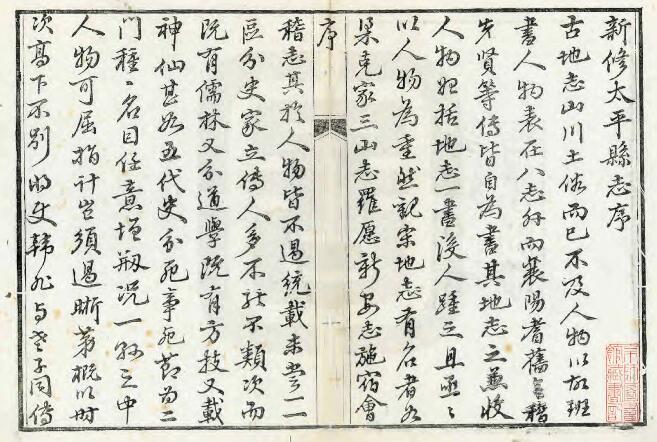 新修太平縣志序
古地志山川土俗而已不及人物以故班
書人物表在八志外而襄陽耆舊會稽
先賢等傳皆自為書其地志之兼收
人物始括地志一書後人踵之且亟亟
以人物為重然觀宋地志有名者如
梁克家三山志羅愿新安志施宿會
序
稽志其於人物皆不過統載未嘗一一
區分史家立傳人多不能不類次而
既有儒林又分道學既有方技又載
神仙甚如五代史分死事死節為二
門種種名目任意增刱況一縣之中
人物可屈指計豈須過晰第概以時
次高下不別將史韓非与老子同傳